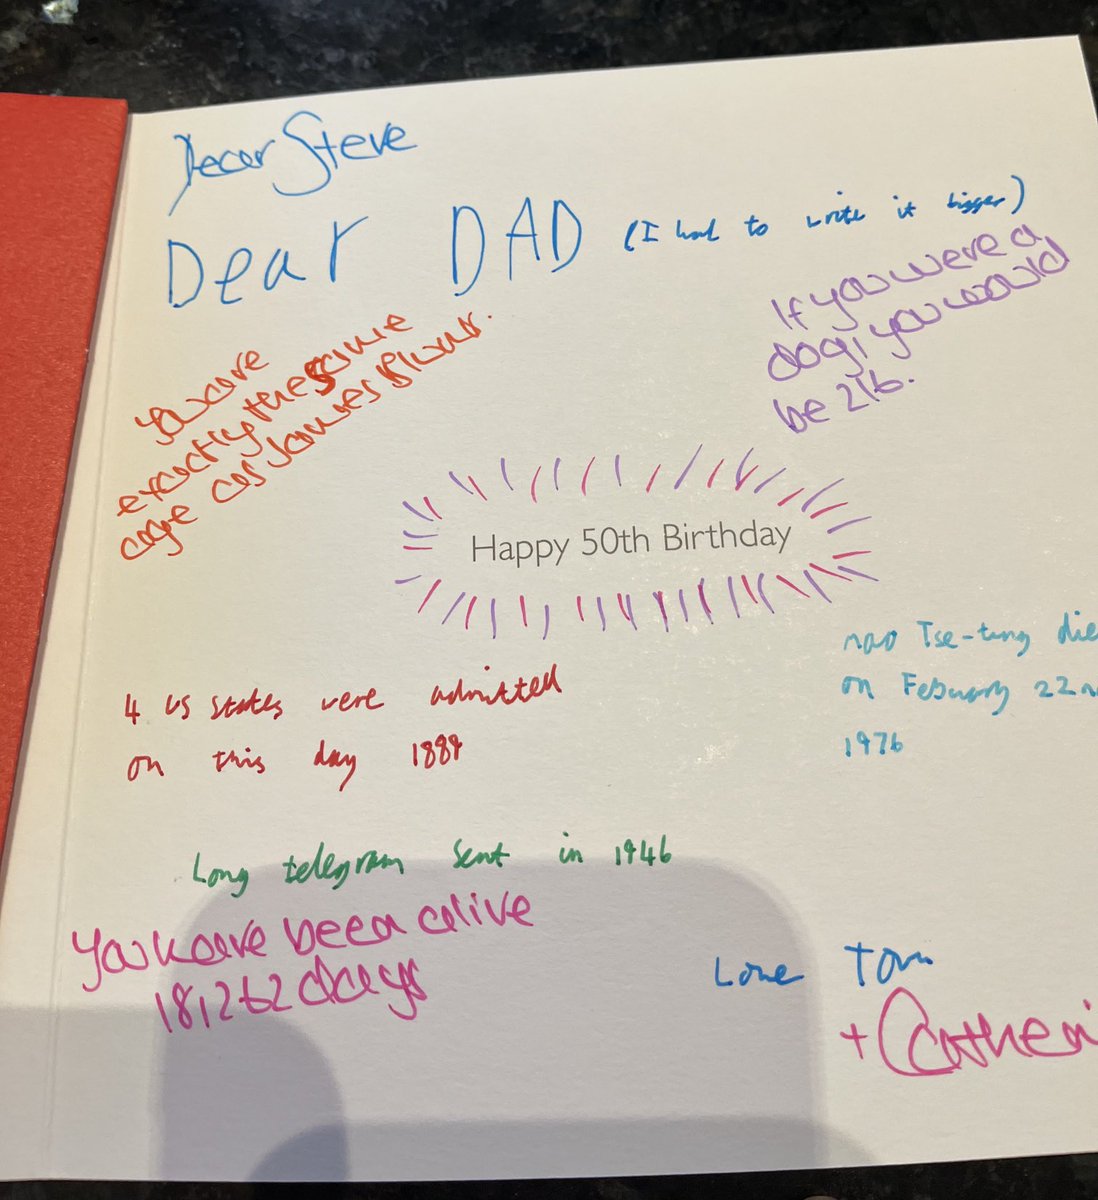 Dear Steve
Dear DAD (I had to write it bigger)
You are
exactly the same
age as James Blunt.
If you were a
dog, you would
be 216.
Happy 50th Birthday
4 US states were admitted
on this day 1889
mao Tse-tung die
on Febuary 22n
1976
Long telegram sent in 1946
You have been alive
18,262 days
Love Tom
+ Catheri